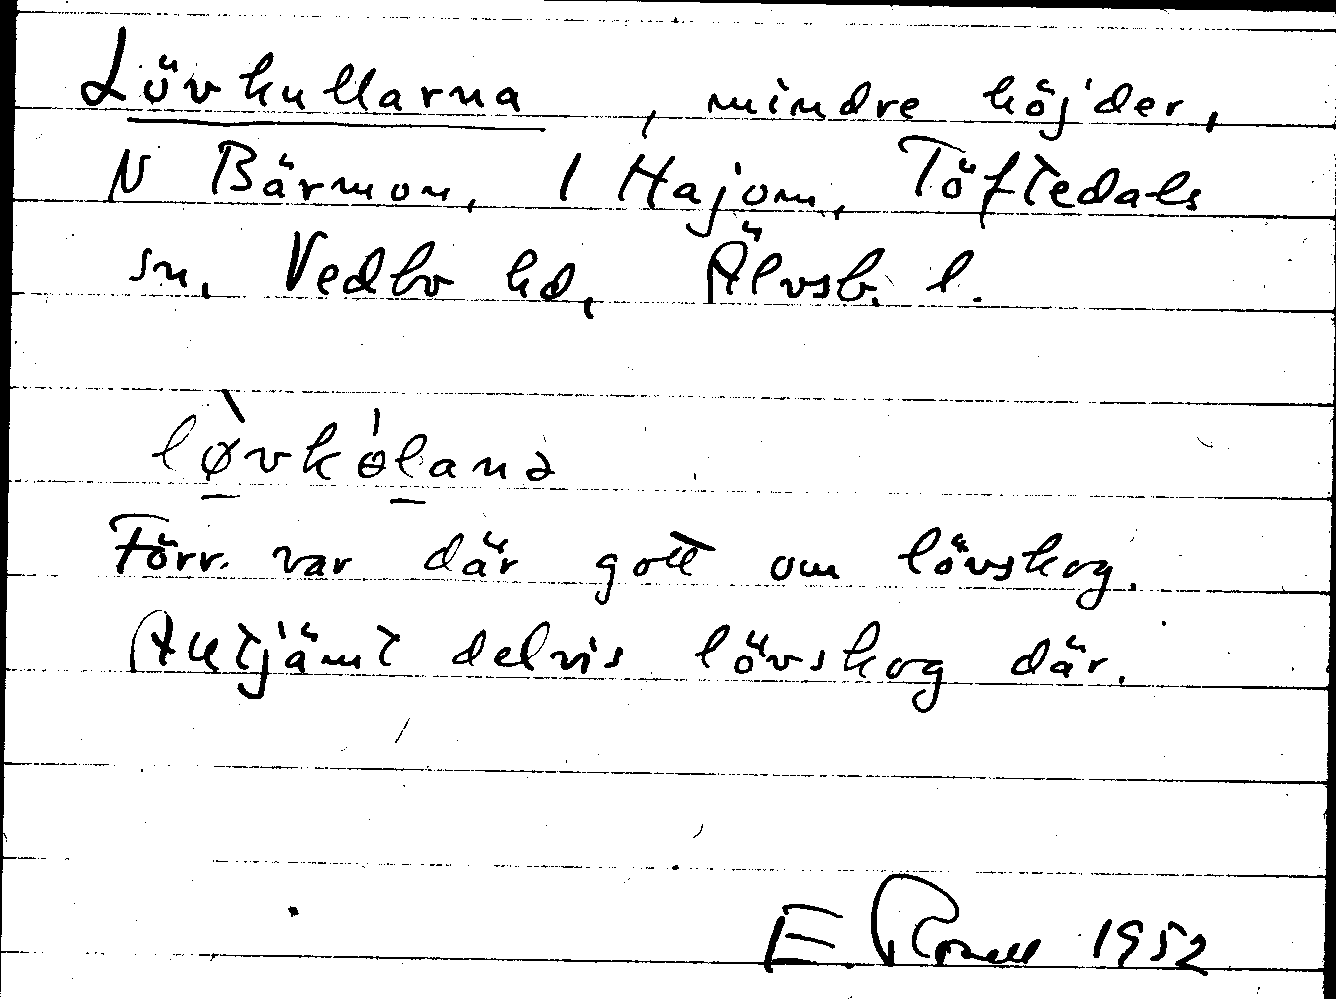 Lövkullarna, mindre höjder,
N Bärmon, 1 Hajom, Töftedals
sn, Vedbo hd, Älvsb. l.
lø̀vkɵ́lanə
Förr var där gott om lövskog.
Alltjämt delvis lövskog där.
E. Rosell 1952